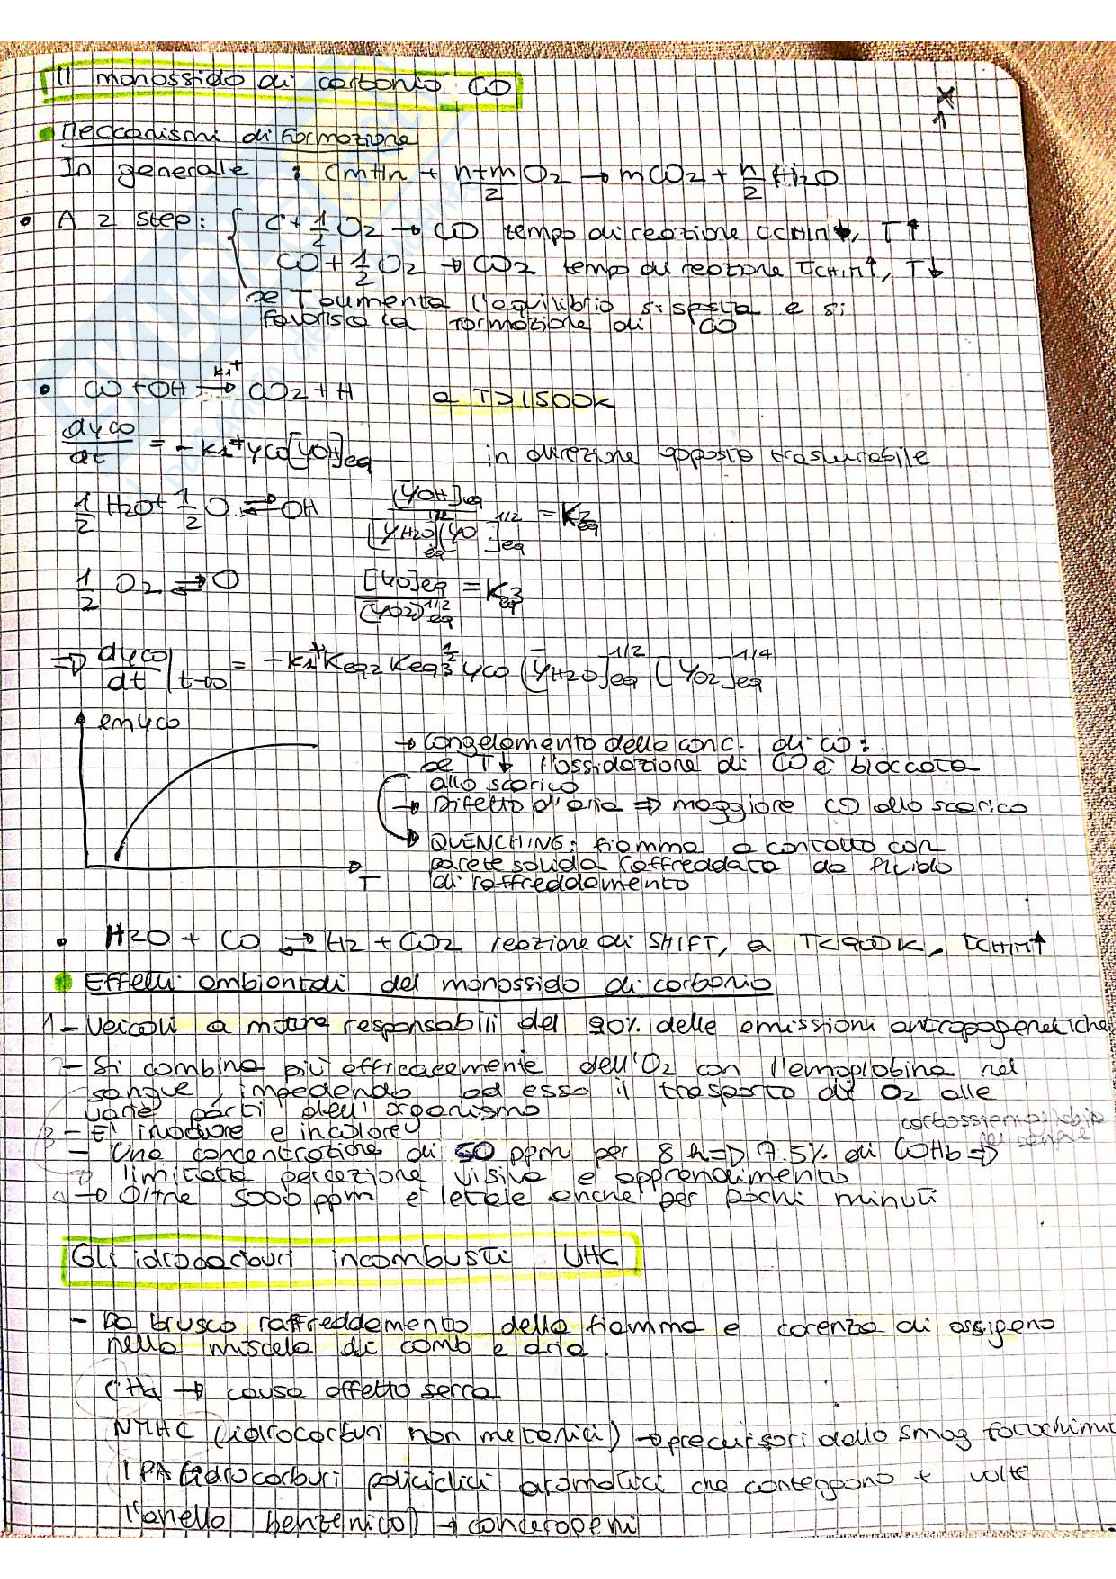 Il monossido di carbonio CO
Meccanismi di Formazione
In generale : CmHn + n+m/2 O2 → mCO2 + n/2 H2O
A 2 step: { C + 1/2 O2 → CO tempo di reazione τCHIM↓, T↑
CO + 1/2 O2 → CO2 tempo di reazione τCHIM↑, T↓
se T aumenta l'equilibrio si sposta e si
favorisce la formazione di CO
CO + OH —k1+→ CO2 + H a T>1500K
dyco/dt = - k1+ yco[yOH]eq in direzione opposta trascurabile
1/2 H2O + 1/2 O ⇌ OH [yOH]eq / [yH2O]eq^1/2 [yO]eq^1/2 = Keq2
1/2 O2 ⇌ O [yO]eq / [yO2]eq^1/2 = Keq3
⇒ dyco/dt | t→∞ = - k1+ Keq2 Keq3^1/2 yco [yH2O]eq^1/2 [yO2]eq^1/4
ln yco
T
→ Congelamento della conc. di CO:
se T↓ l'ossidazione di CO è bloccata
allo scarico
→ Difetto d'aria ⇒ maggiore CO allo scarico
→ QUENCHING: fiamma a contatto con
parete solida raffreddata da fluido
di raffreddamento
H2O + CO ⇌ H2 + CO2 reazione di SHIFT, a T<900K, τCHIM↑
Effetti ambientali del monossido di carbonio
1 - Veicoli a motore responsabili del 90% delle emissioni antropogenetiche
2 - Si combina più efficacemente dell'O2 con l'emoglobina nel
sangue, impedendo ad esso il trasporto di O2 alle
varie parti dell'organismo
3 - E' inodore e incolore
- Una concentrazione di 50 ppm per 8 h ⇒ 7.5% di COHb ⇒
carbossiemoglobina
del sangue
limitata percezione visiva e apprendimento
4 → Oltre 5000 ppm è letale anche per pochi minuti
Gli idrocarburi incombusti UHC
- Da brusco raffreddamento della fiamma e carenza di ossigeno
nella miscela di comb e aria
CH4 → causa effetto serra
NMHC (idrocarburi non metanici) → precursori dello smog fotochimic
IPA (idrocarburi policiclici aromatici che contengono + volte
l'anello benzenico) → cancerogeni